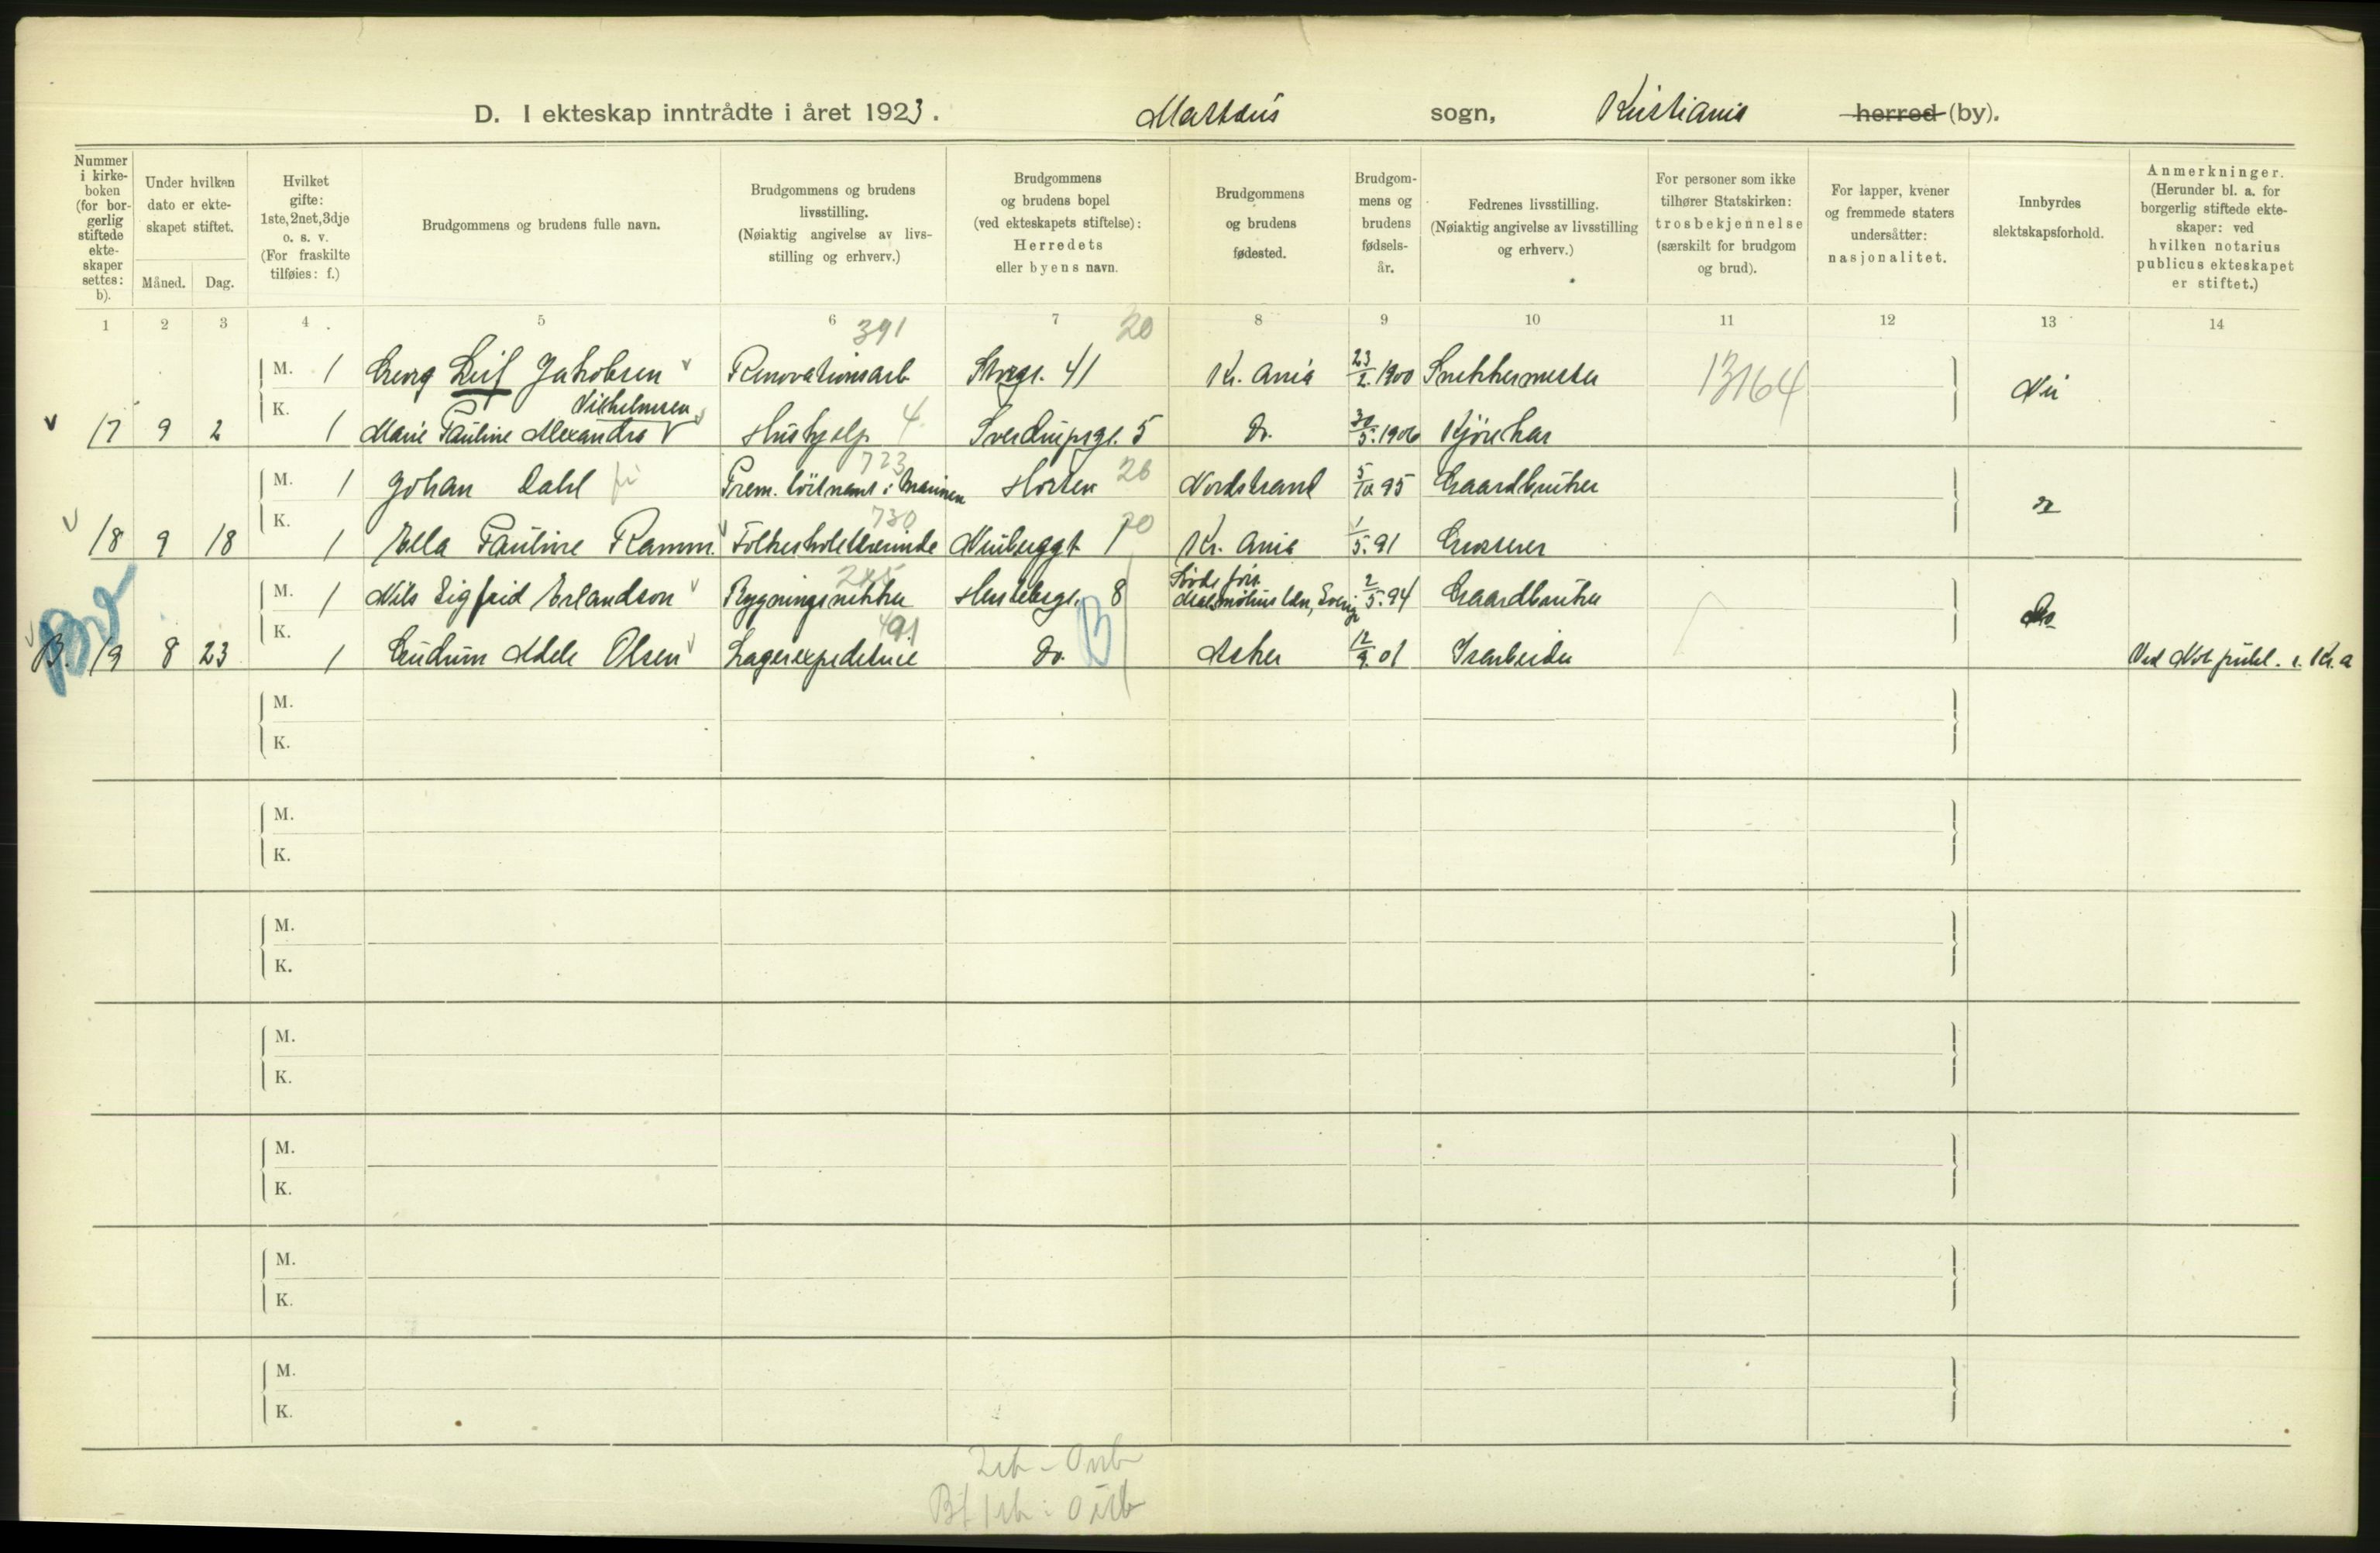 D. I ekteskap inntrådte i året 1923. Mattæus sogn, Kristiania herred (by).
Nummer i kirkeboken (for borgerlig stiftede ekteskaper settes: b).
Under hvilken dato er ekteskapet stiftet.
Måned. Dag.
Hvilket gifte: 1ste, 2net, 3dje o. s. v. (For fraskilte tilføies: f.)
Brudgommens og brudens fulle navn.
Brudgommens og brudens livsstilling. (Nøiaktig angivelse av livsstilling og erhverv.)
Brudgommens og brudens bopel (ved ekteskapets stiftelse): Herredets eller byens navn.
Brudgommens og brudens fødested.
Brudgommens og brudens fødselsår.
Fedrenes livsstilling. (Nøiaktig angivelse av livsstilling og erhverv.)
For personer som ikke tilhører Statskirken: trosbekjennelse (særskilt for brudgom og brud).
For lapper, kvener og fremmede staters undersåtter: nasjonalitet.
Innbyrdes slektskapsforhold.
Anmerkninger. (Herunder bl. a. for borgerlig stiftede ekteskaper: ved hvilken notarius publicus ekteskapet er stiftet.)
1 2 3 4 5 6 7 8 9 10 11 12 13 14
391 20
M. 1 Georg Leif Jakobsen Renovationsarb Storgt. 41 Kr. ania 23/2. 1900 Snekkermester 13164 Nei
Vilhelmsen
17 9 2 K. 1 Marie Pauline Alexandra Hushjelp 4 Sverdrupsgt. 5 Do. 30/5. 1906 Kjørekar
723
M. 1 Johan Dahl Prem. löitnant i Marinen Horten 26 Nordstrand 5/10 95 Gaardbruker
730
18 9 18 K. 1 Ella Pauline Ramm Folkeskolelærerinde Nubyggt 1 20 Kr. Ania 1/5. 91 Grosserer
245
M. 1 Nils Sigfrid Erlandson Bygningsnekker Herslebsgt. 8 Malmøhus læn, Sverige 2/5. 94 Gaardbruker
491
B. 19 8 23 K. 1 Gudrun Adele Olsen Lagerexpeditrice Do. B Asker 12/9. 01 Isarbeider Ved Not publ. i. Kr. a
M.
K.
M.
K.
M.
K.
M.
K.
M.
K.
M.
K.
M.
K.